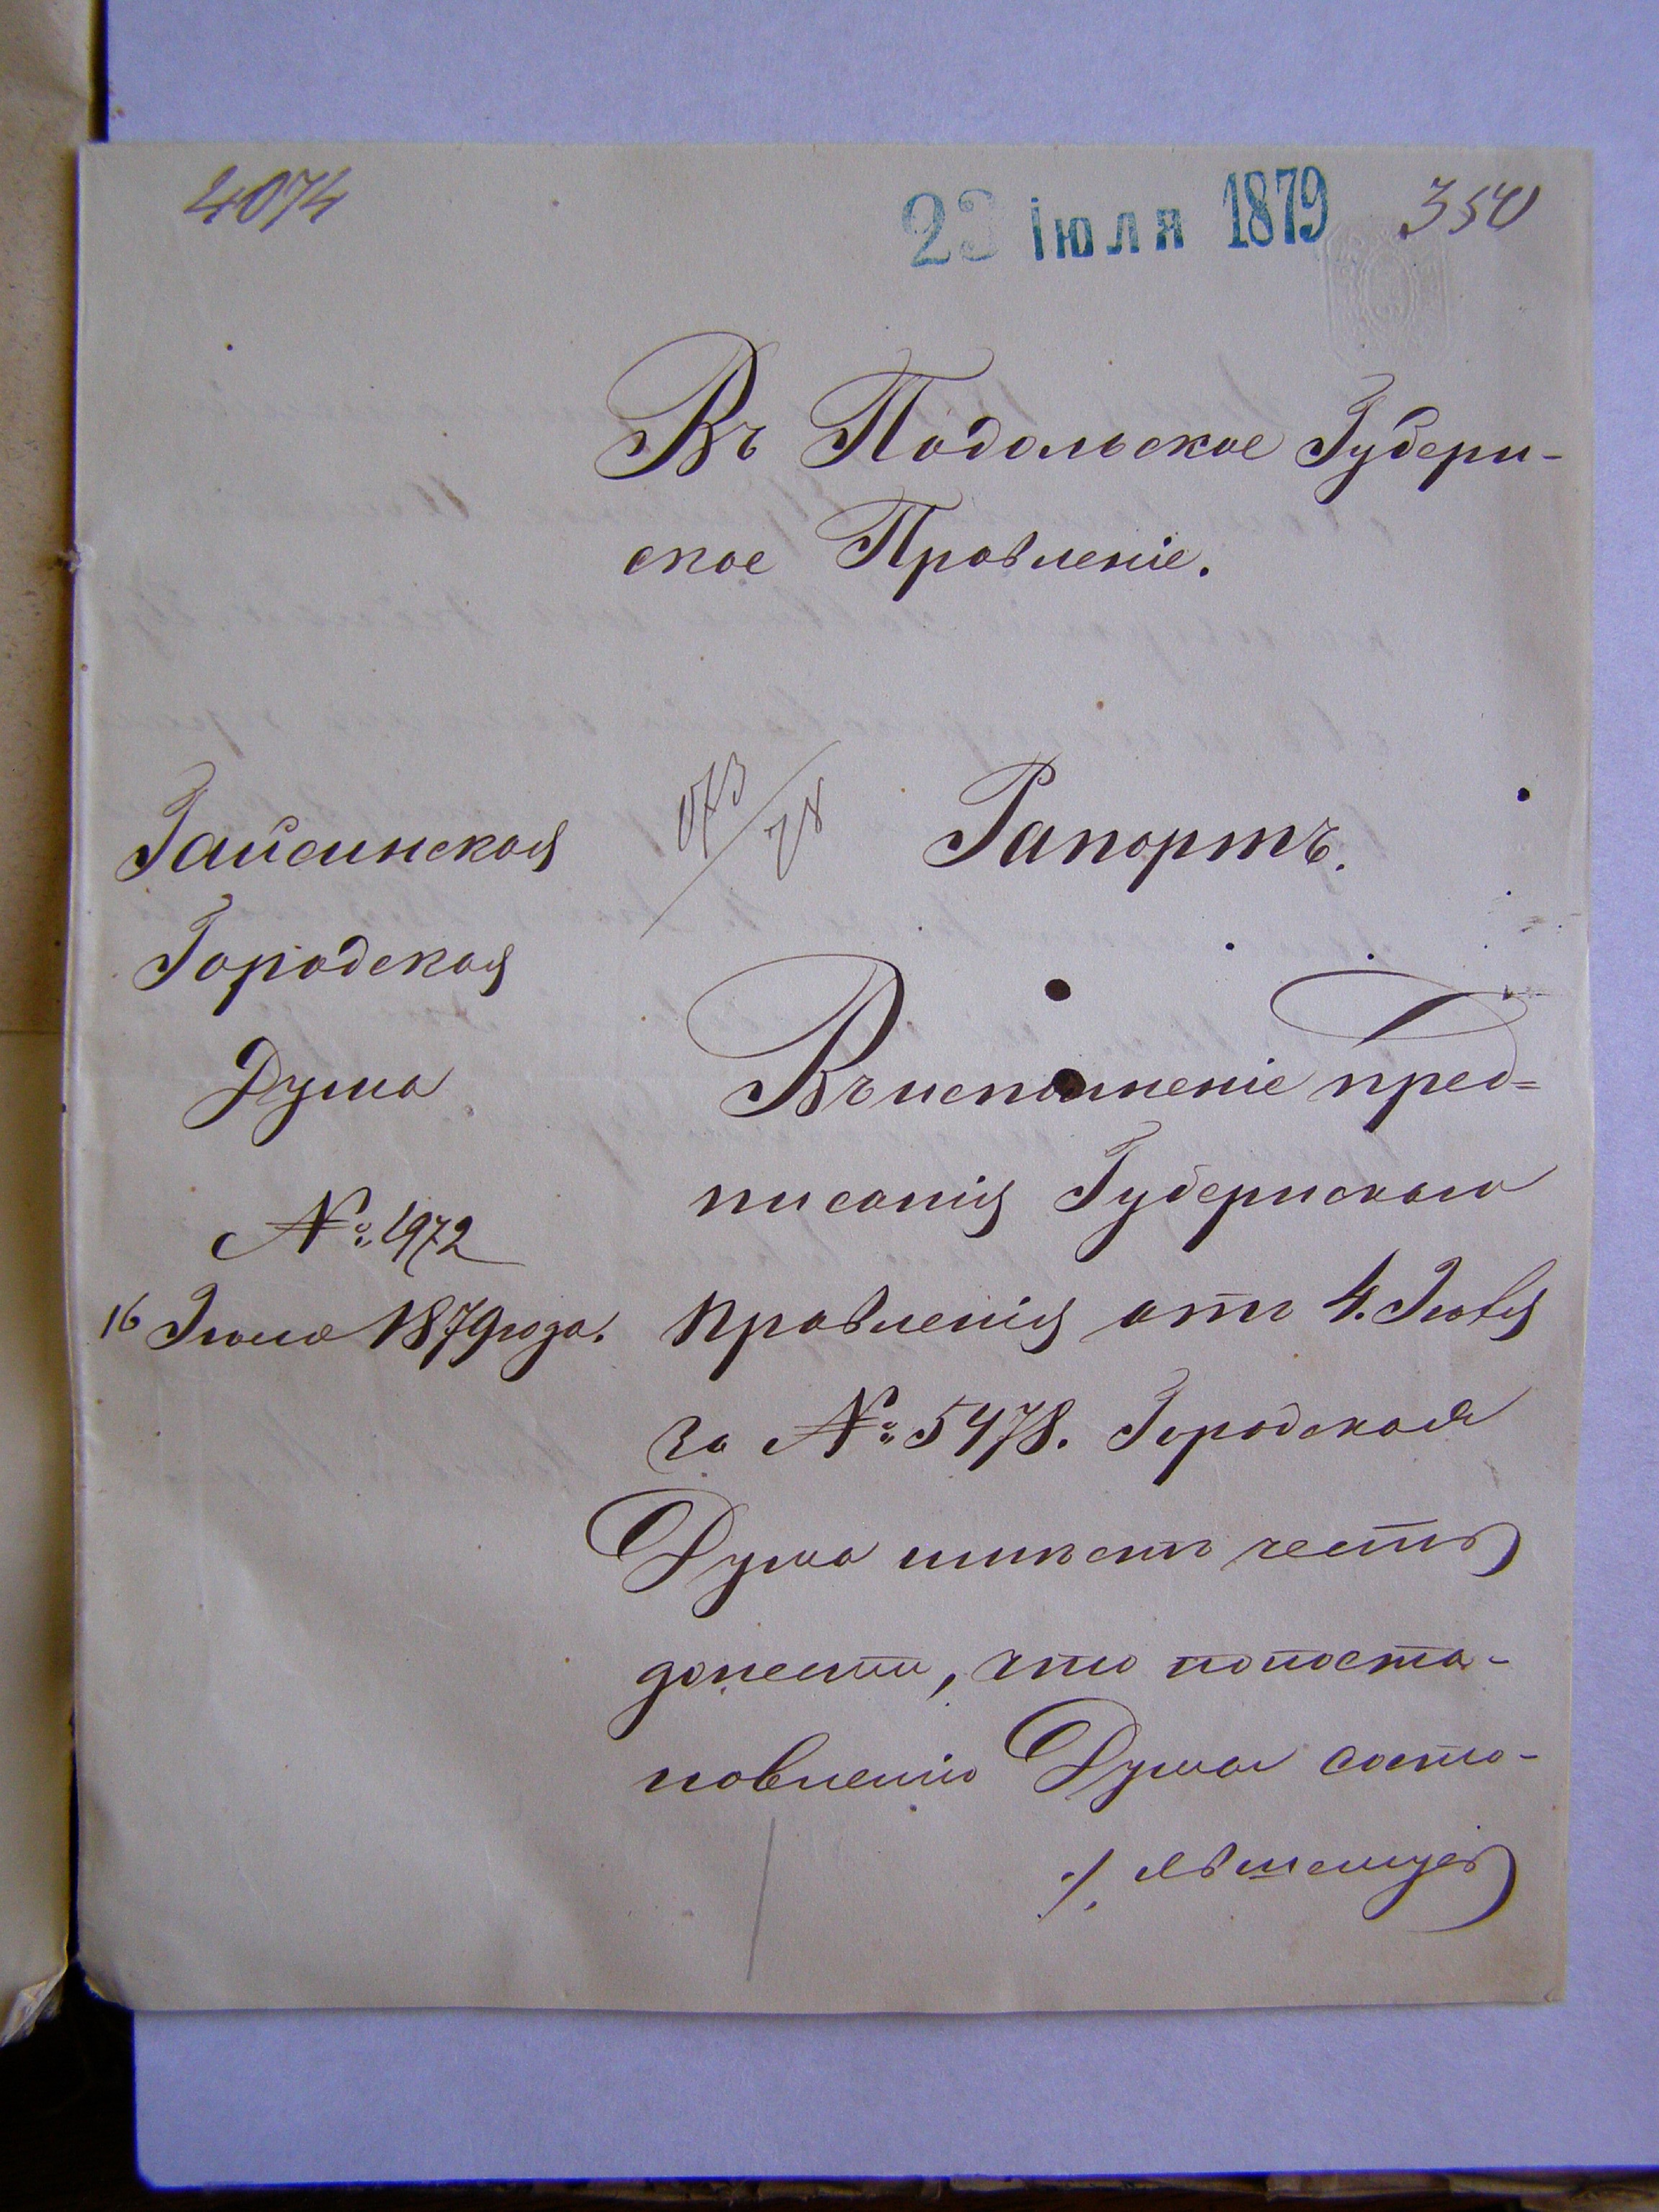 4074
23 Іюля 1879
350
Въ Подольское Губерн-
ское Правленіе.
Гайсинская
Городская
Дума
№ 1972
16 Іюля 1879 года.
Рапортъ.
Въ исполненіе пред=
писанія Губернскаго
Правленія отъ 4. Іюля
за № 5478. Городская
Дума имѣетъ честь
донести, что по поста-
новленію Думы состо-
явшемуся